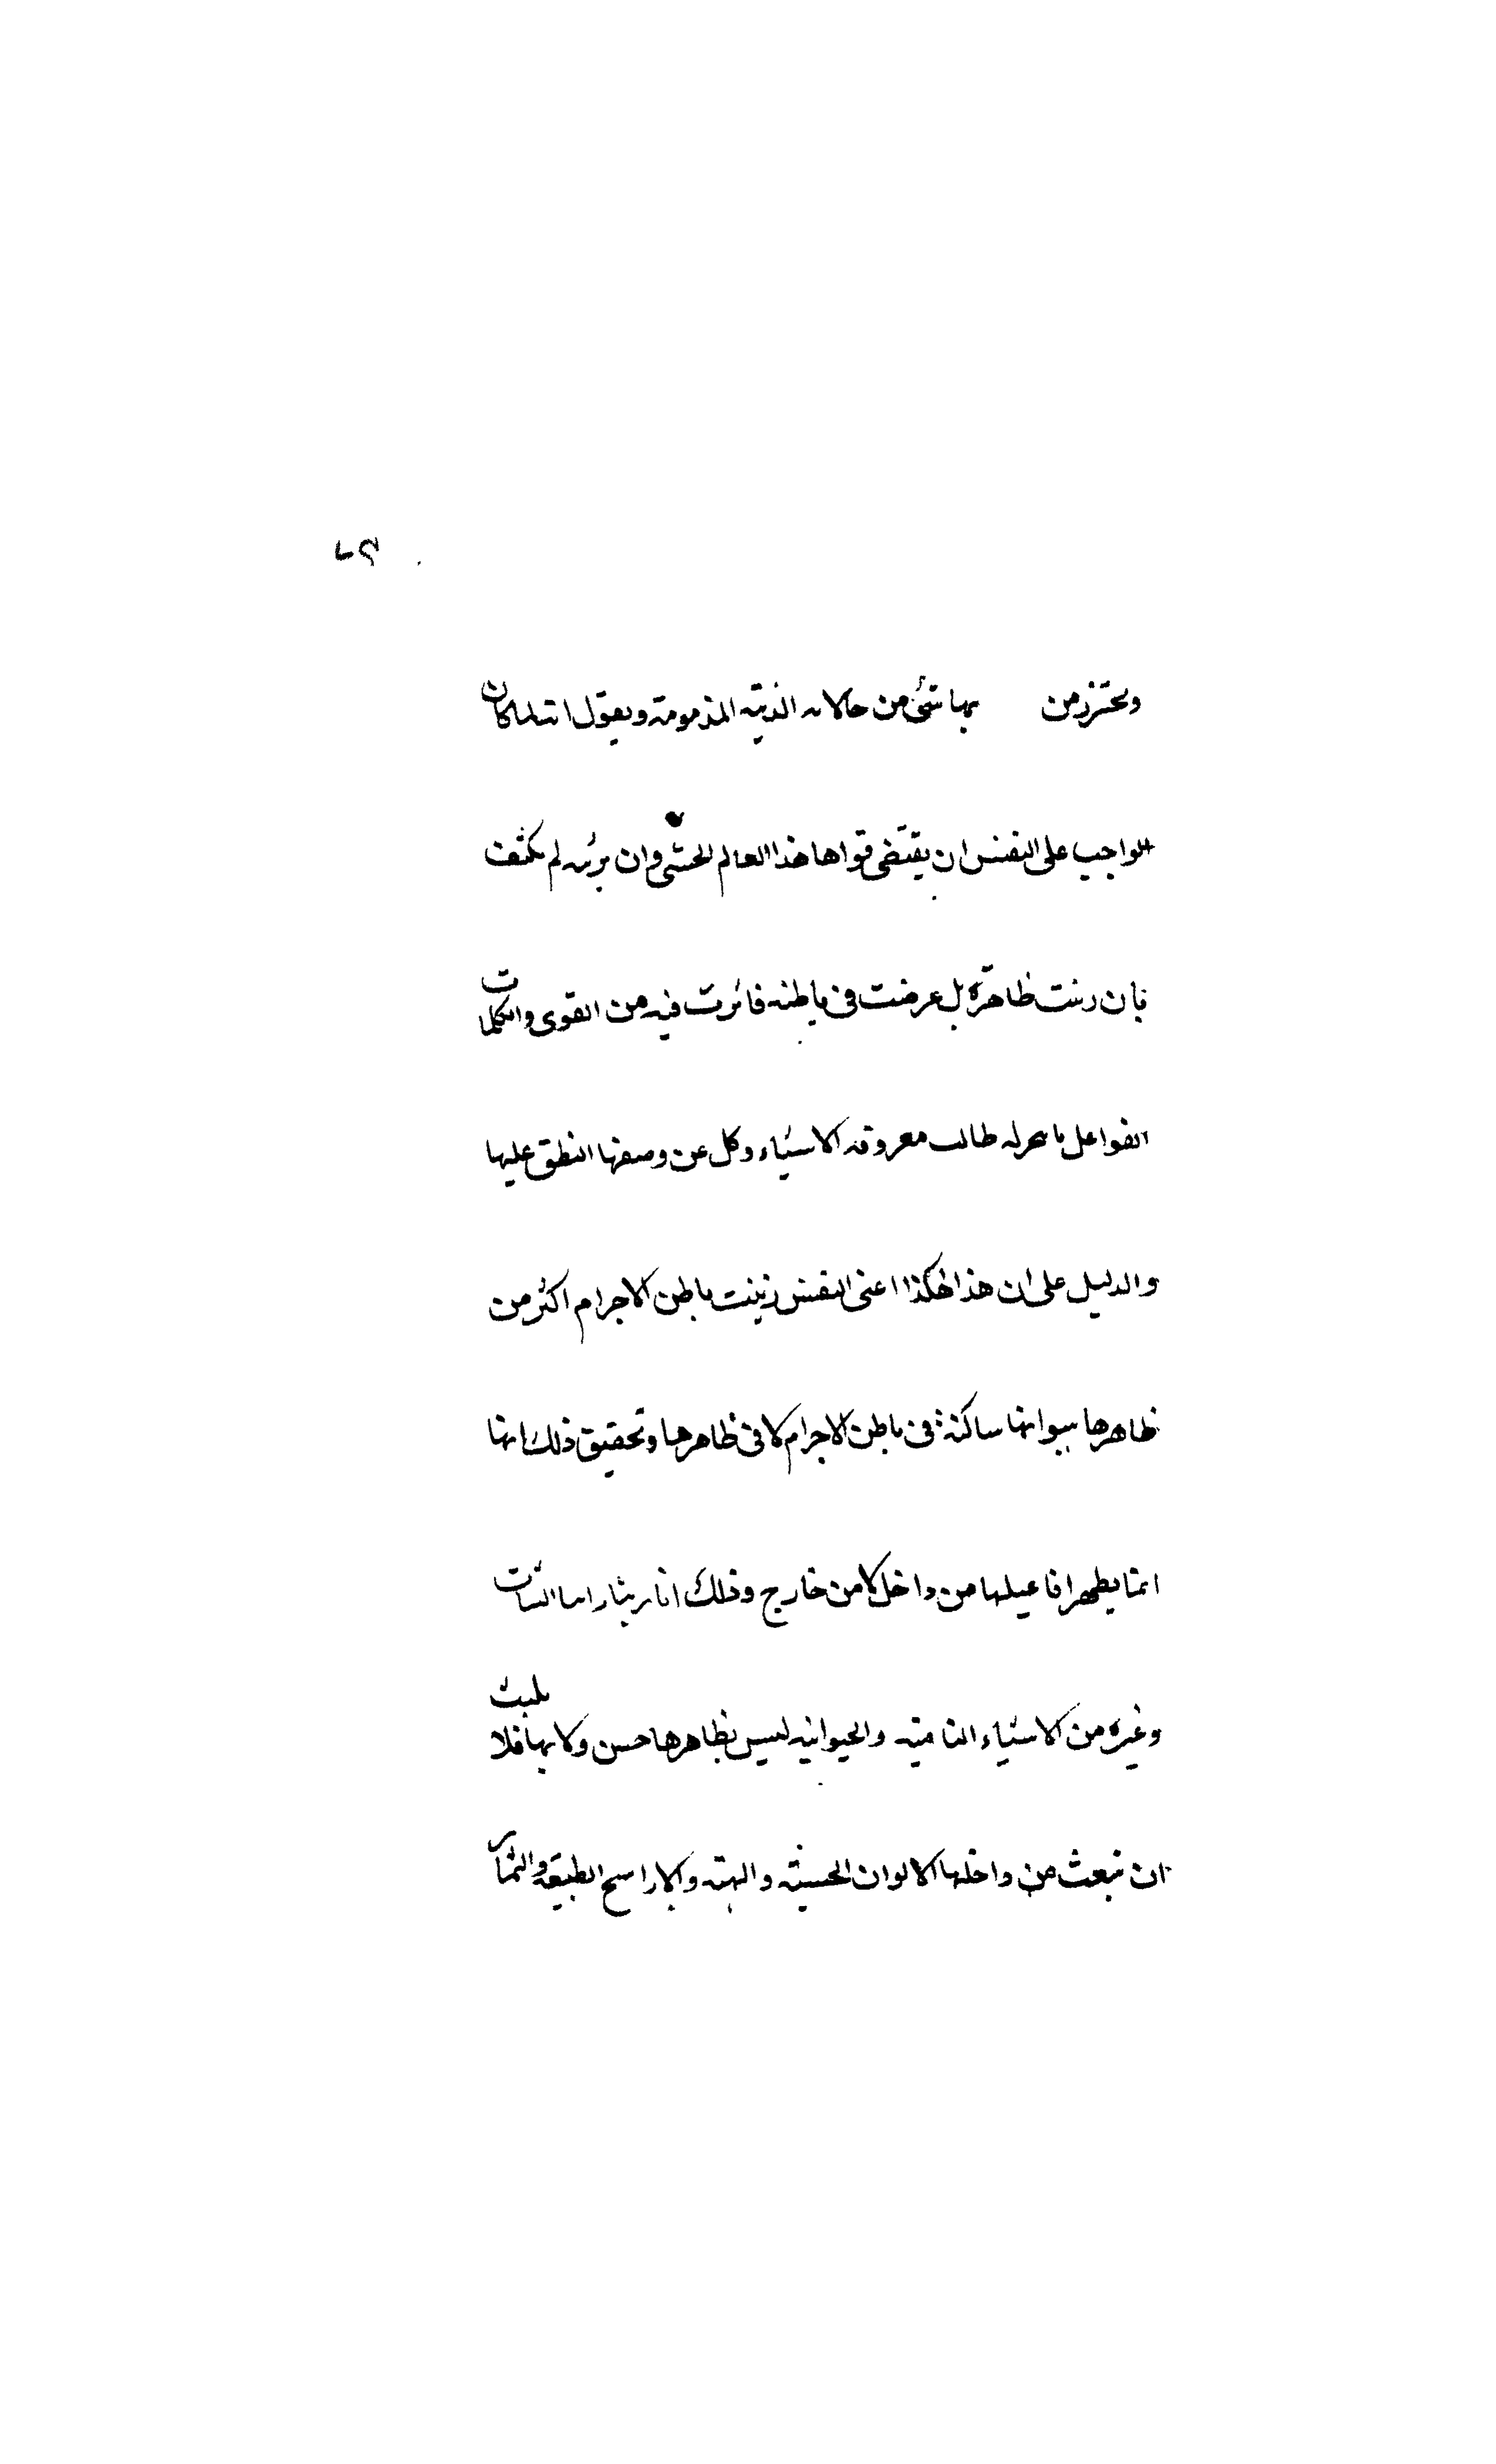 ويحترز من بها شئ من حالاته الدنية المذمومة ويقول انه لما كان
الواجب على النفس ان يقتضى قواها هذا العالم الحسى وان لم تكتف
بان زينت ظاهره بل غرضت فى باطنه فاثرت فيه من القوى والكلمات
الفواعل ما طالب معروفه الاشياء وكل عن وصفها النطق عليها
والدليل على ان هذا هكذا اعنى النفس زينت باطن الاجرام اكثر من
ظاهرها انها ساكنة فى باطن الاجرام لا فى ظاهرها وتحقيق ذلك انها
انما يظهر افاعيلها من داخل لا من خارج وذلك انا ربما راينا النبات
وغيره من الاشياء النامية والحيوانية ليس بظاهرها حسن ولا بها فلا يلبث
ان تنبعث من داخلها الالوان الحسنة والبهية والاراييح الطيبة والثمار